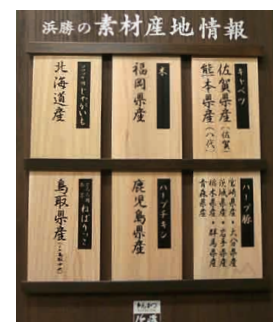 浜勝の素材産地情報
キャベツ
佐賀県産(佐賀)
熊本県産(八代)
米
福岡県産
じゃがいも
北海道産
ハーブ豚
宮崎県産・大分県産
茨城県産・岩手県産
栃木県産・群馬県産
青森県産
ハーブチキン
鹿児島県産
ねばりっこ
鳥取県産
とんかつ
浜勝